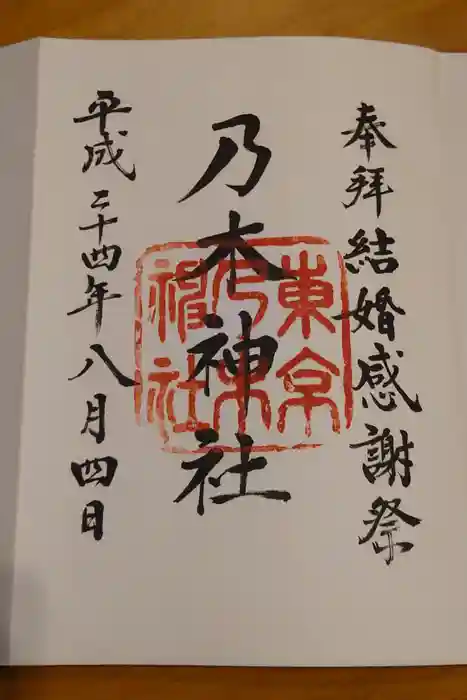 奉拝
結婚感謝祭
乃木神社
東京
乃木
神社
平成二十四年八月四日